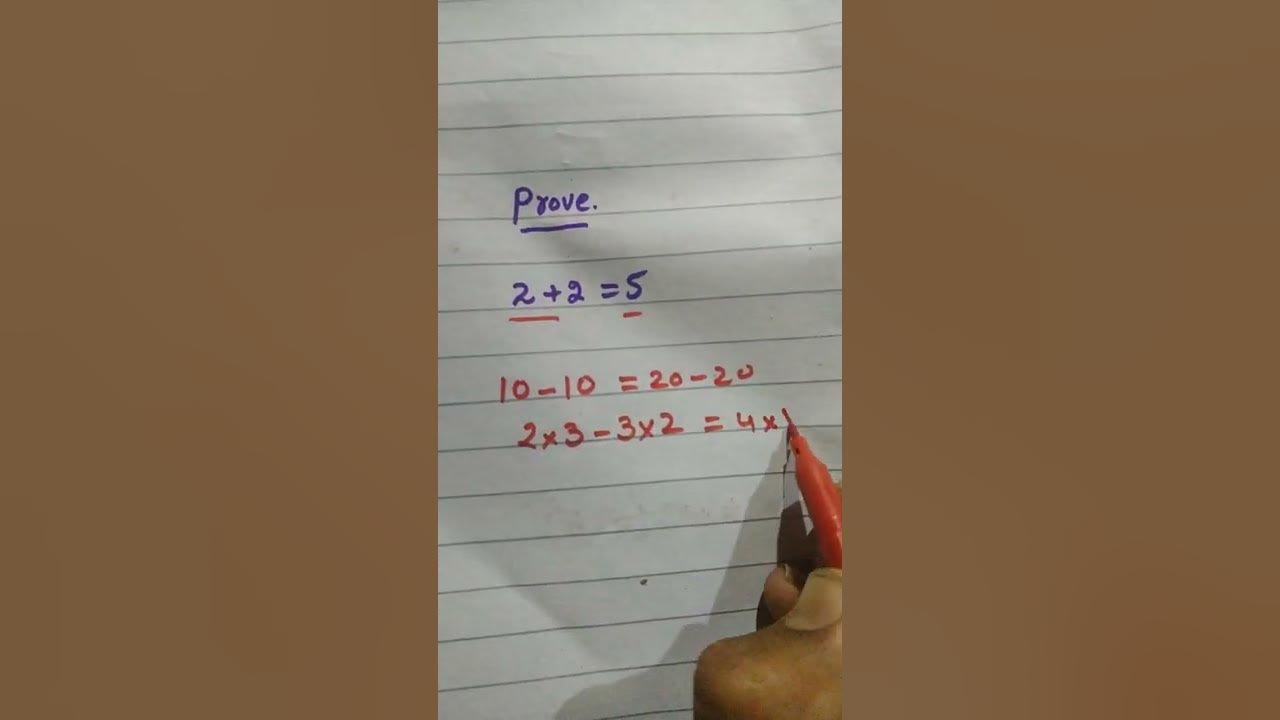 Prove.
2 + 2 = 5
10 - 10 = 20 - 20
2 x 3 - 3 x 2 = 4 x